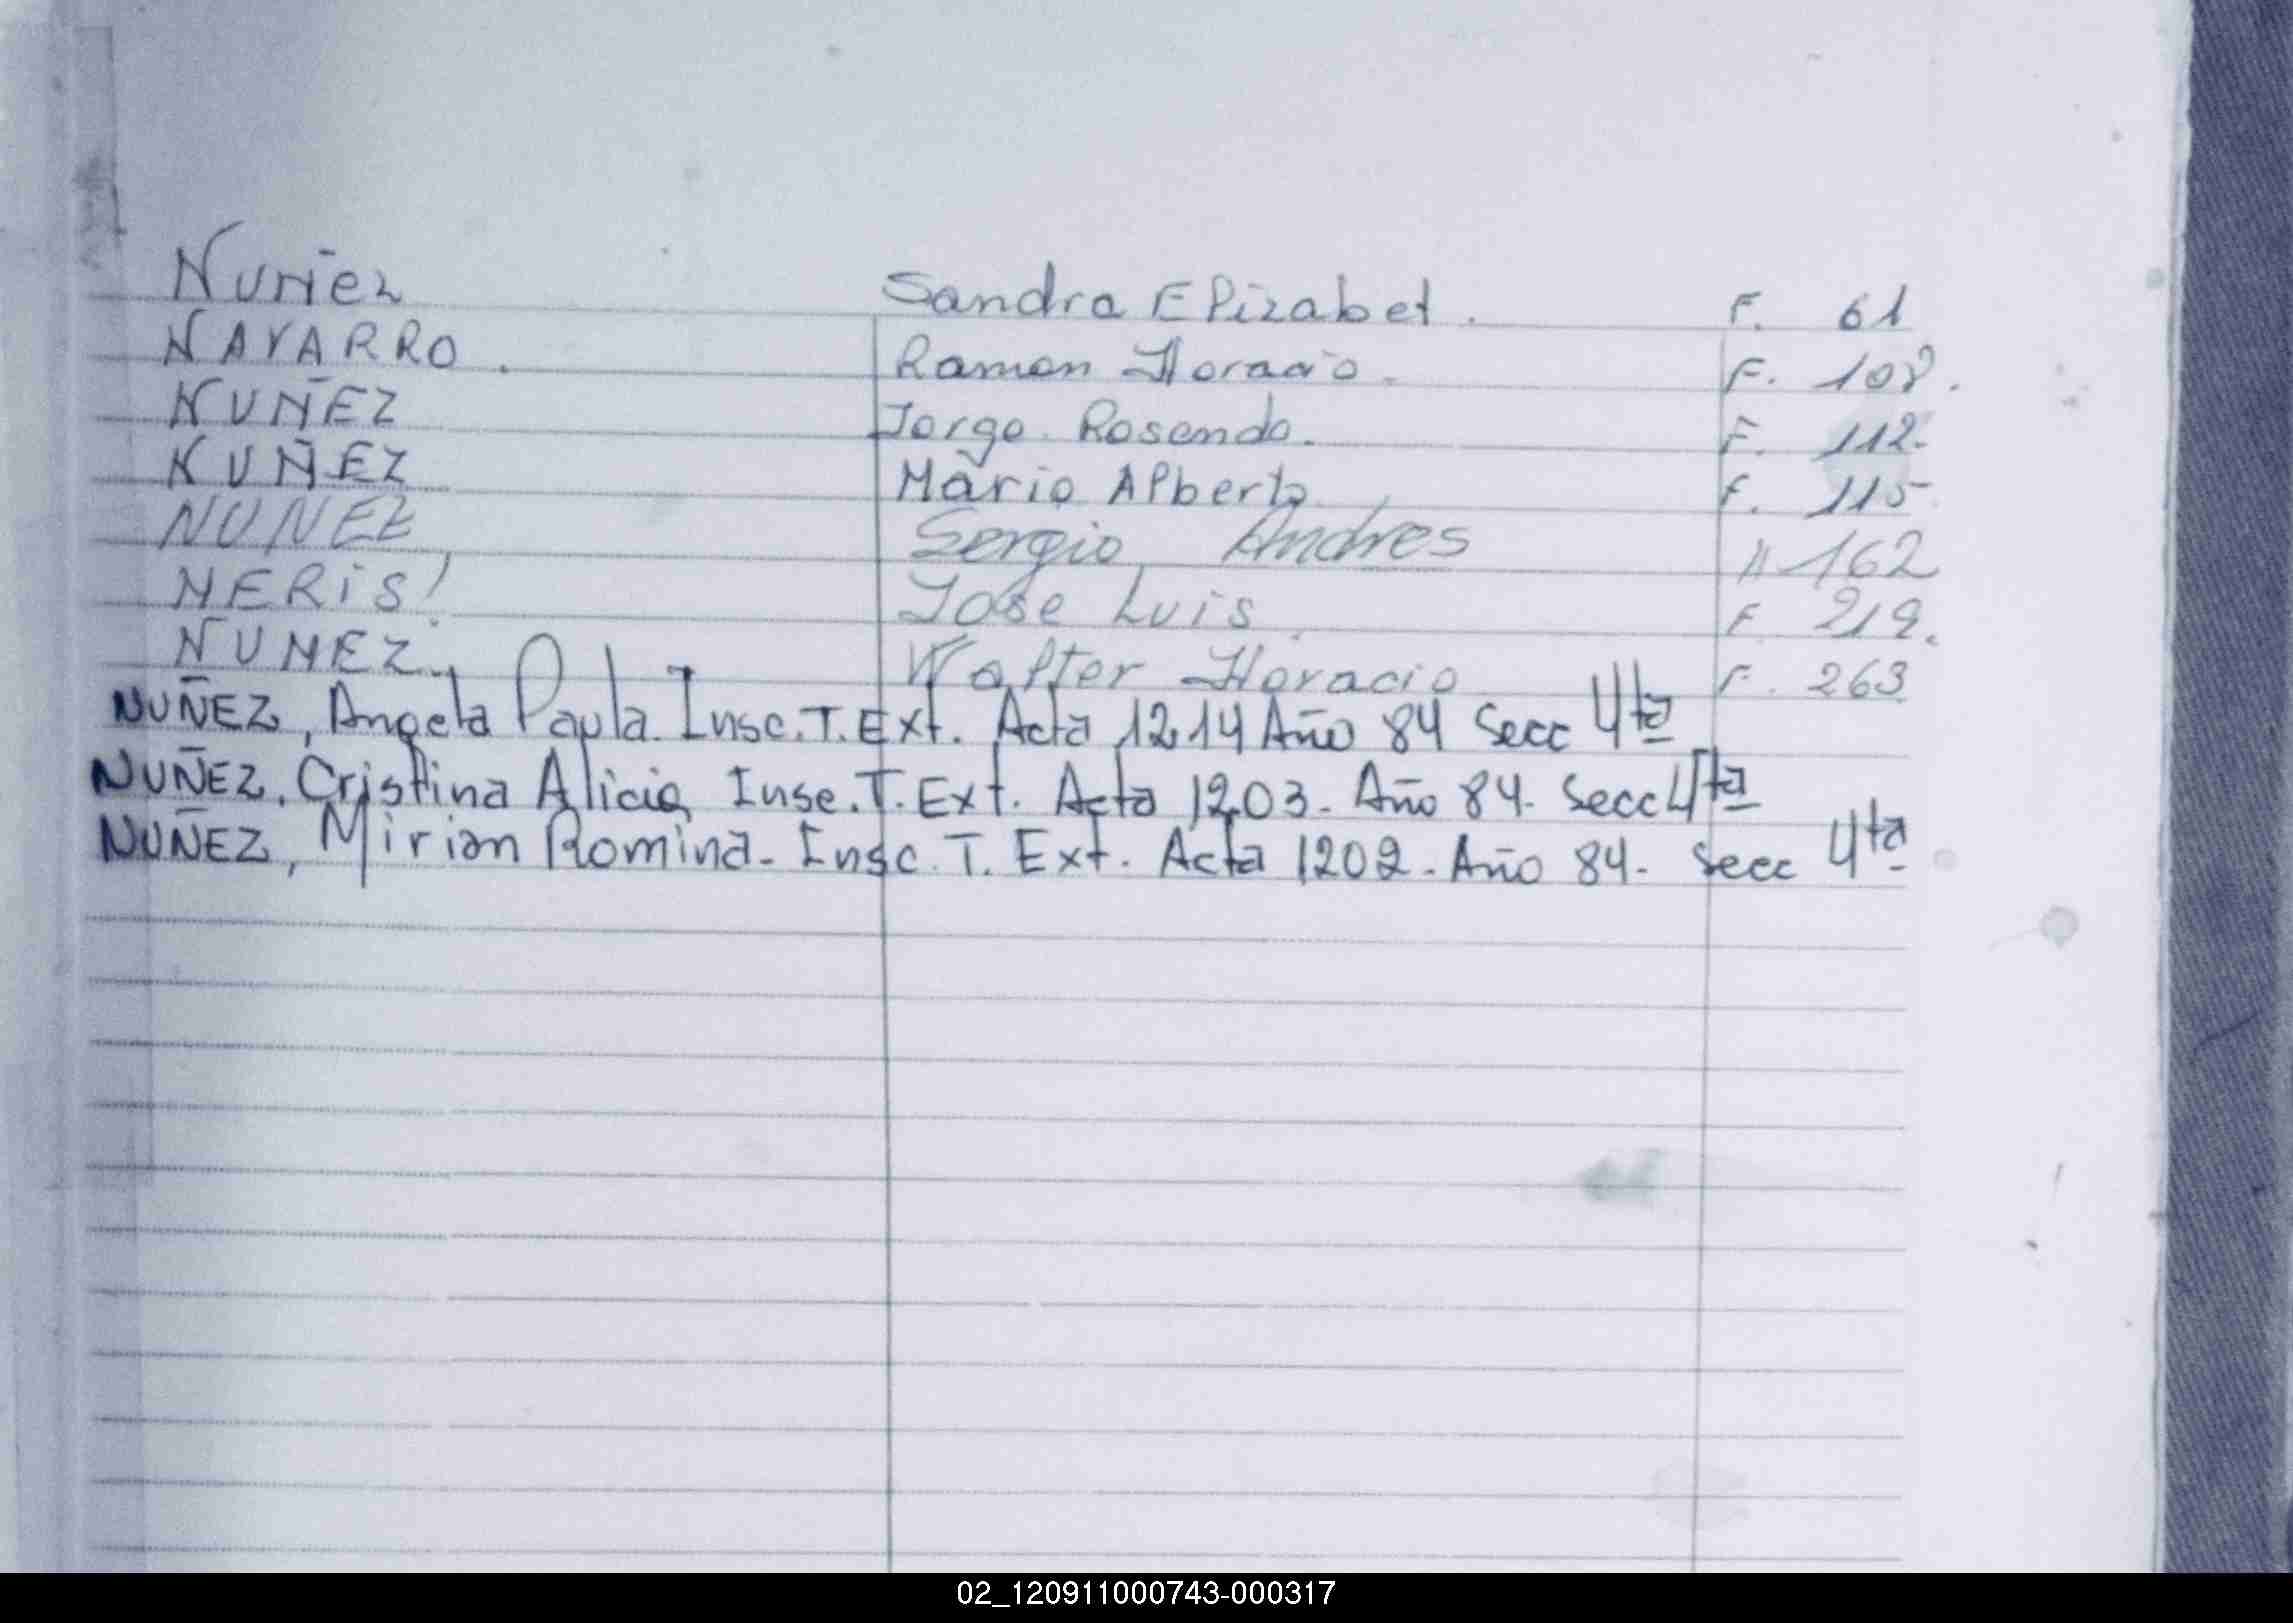 Nuñez Sandra Elizabet. F. 61
NAVARRO. Ramon Horacio. F. 108.
NUÑEZ Jorge Rosendo. F. 112.
NUÑEZ Mario Alberto F. 115
NUNEZ Sergio Andres 162
NERIS! Jose Luis. F 219.
NUNEZ. Walter Horacio F. 263
NUÑEZ, Angela Paula. Insc. T. Ext. Acta 1214 Año 84 Secc 4ta
NUÑEZ. Cristina Alicia Insc. T. Ext. Acta 1203. Año 84. Secc 4ta
NUÑEZ, Mirian Romina. Insc. T. Ext. Acta 1202. Año 84. Secc 4ta
02_120911000743-000317